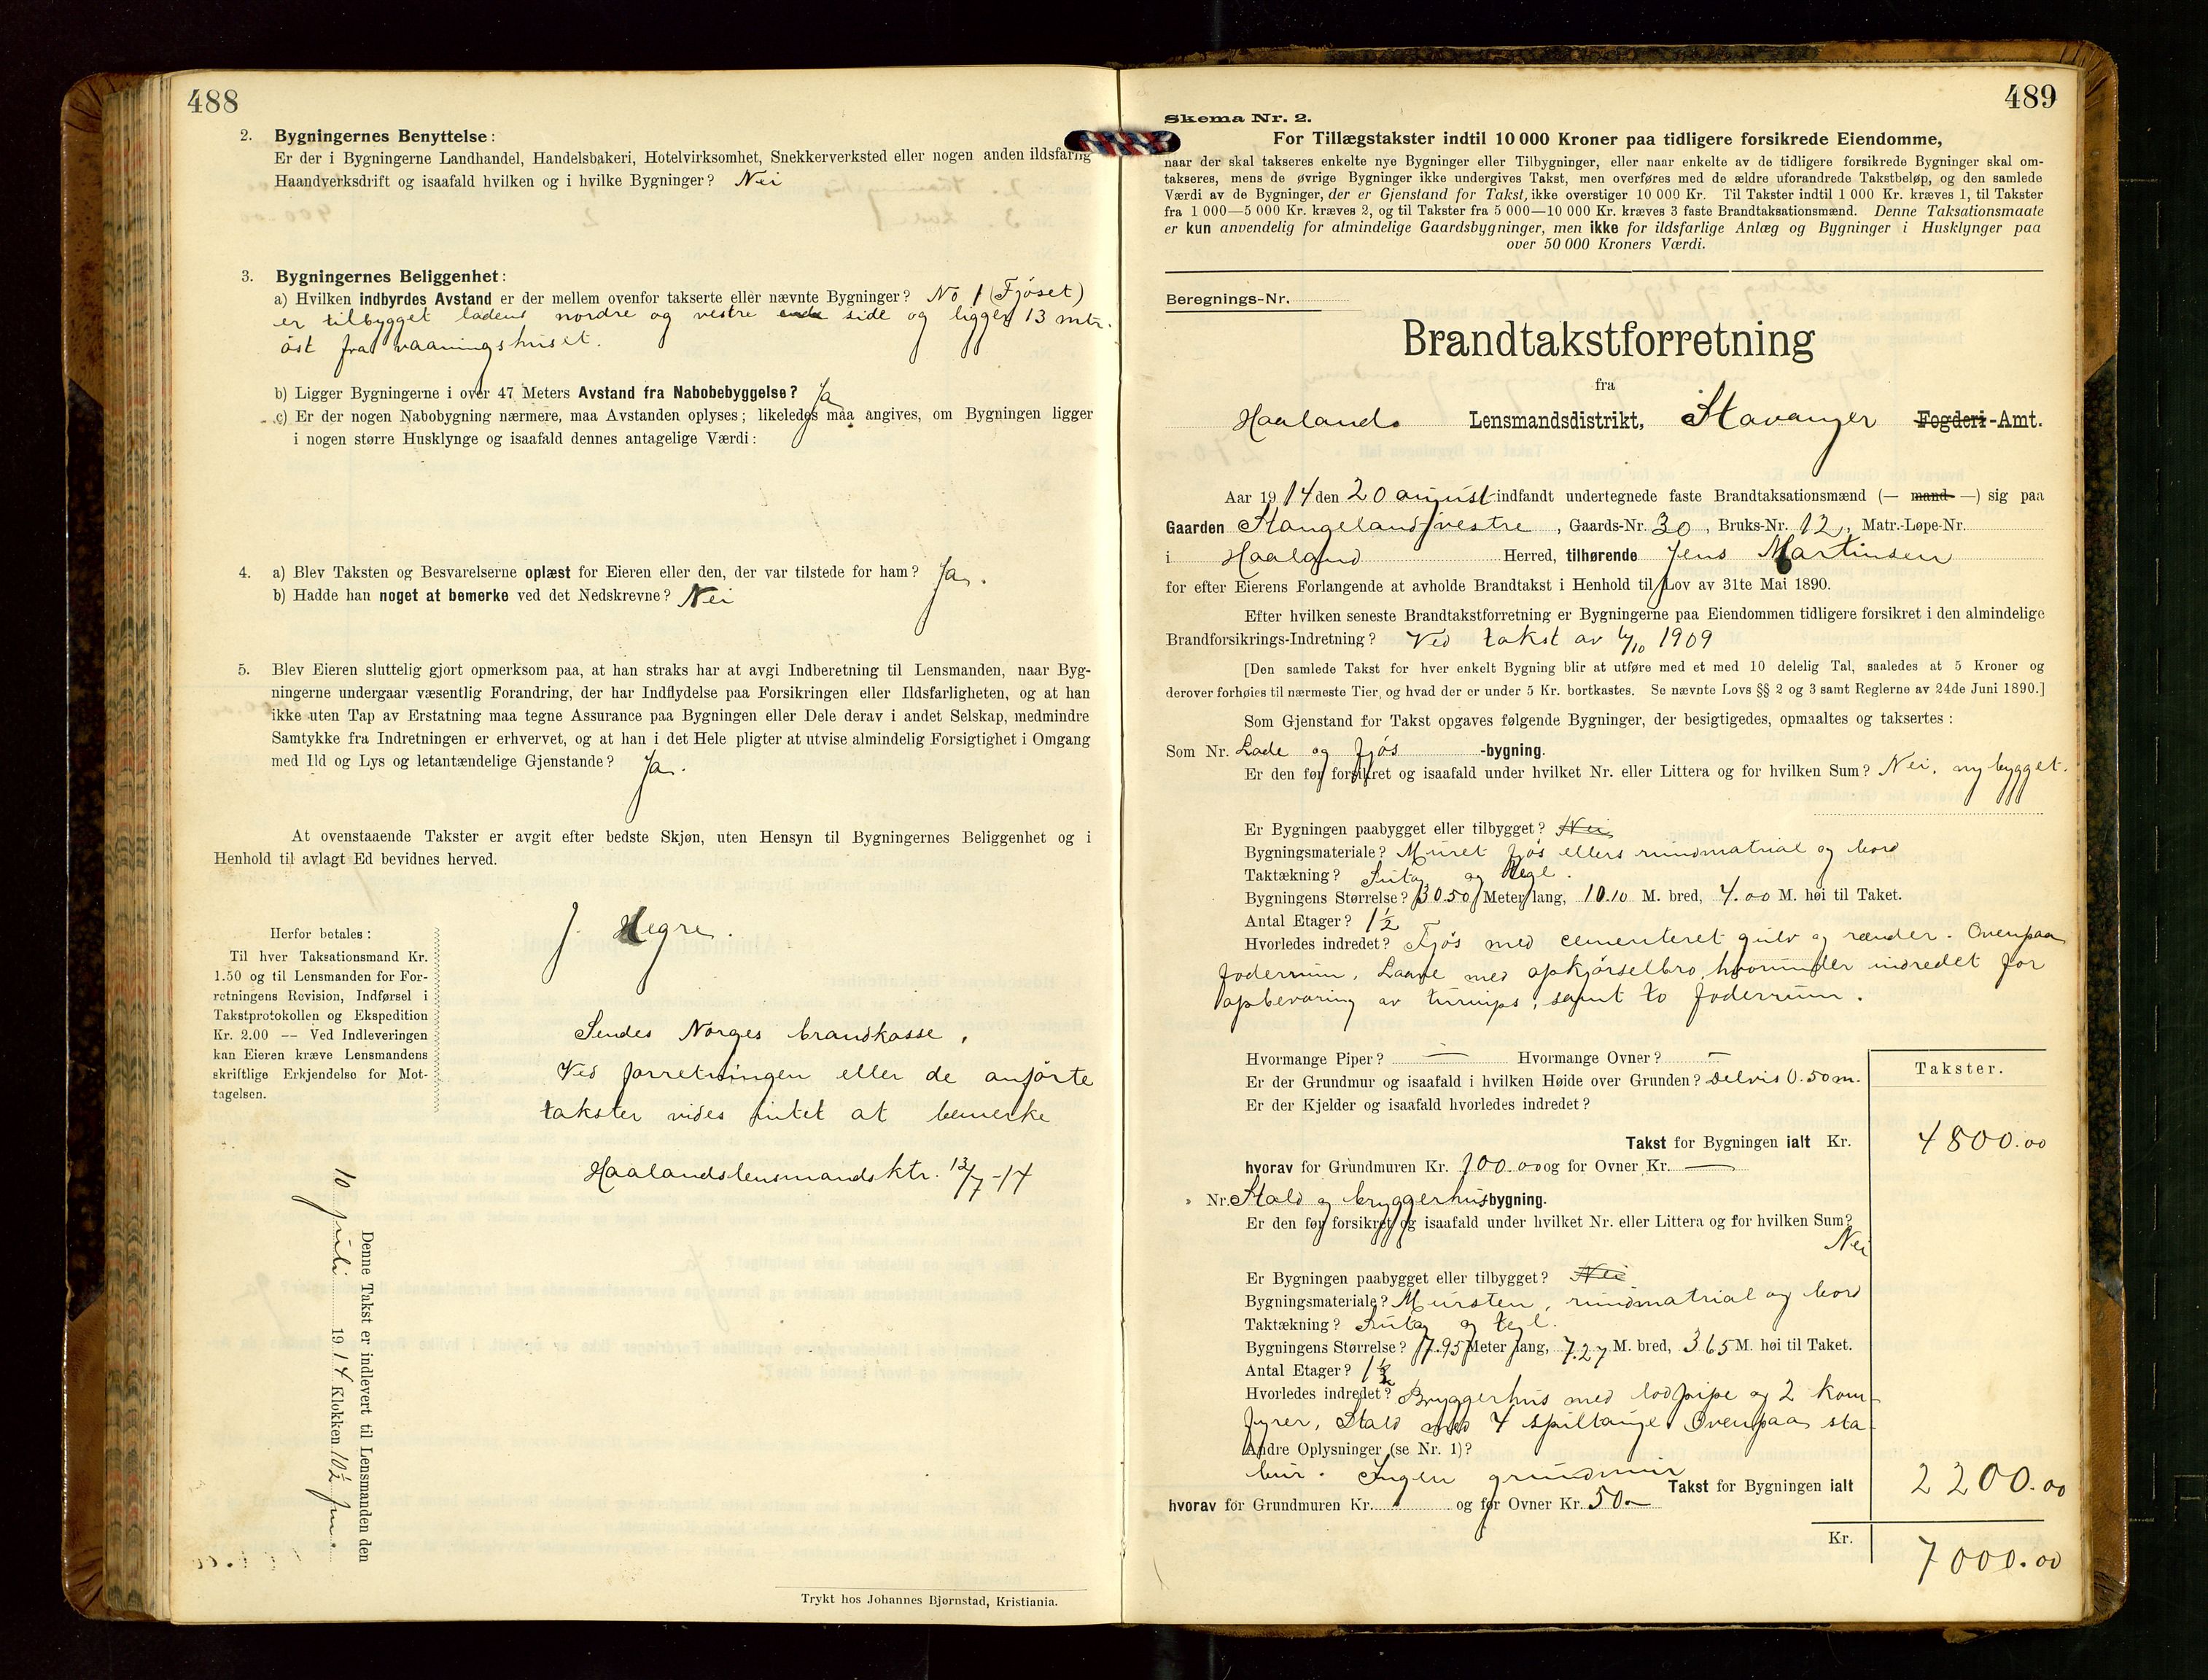 488
2. Bygningernes Benyttelse:
Er der i Bygningerne Landhandel, Handelsbakeri, Hotelvirksomhet, Snekkerverksted eller nogen anden ildsfarlig
Haandverksdrift og isaafald hvilken og i hvilke Bygninger? Nei
3. Bygningernes Beliggenhet:
a) Hvilken indbyrdes Avstand er der mellem ovenfor takserte eller nævnte Bygninger? No 1 (Fjöset)
er tilbygget ladens nordre og vestre ende side og ligger 13 mtr.
öst fra vaaningshuset.
b) Ligger Bygningerne i over 47 Meters Avstand fra Nabobebyggelse? Ja
c) Er der nogen Nabobygning nærmere, maa Avstanden oplyses; likeledes maa angives, om Bygningen ligger
i nogen større Husklynge og isaafald dennes antagelige Værdi:
4. a) Blev Taksten og Besvarelserne oplæst for Eieren eller den, der var tilstede for ham? Ja.
b) Hadde han noget at bemerke ved det Nedskrevne? Nei
5. Blev Eieren sluttelig gjort opmerksom paa, at han straks har at avgi Indberetning til Lensmanden, naar Byg-
ningerne undergaar væsentlig Forandring, der har Indflydelse paa Forsikringen eller Ildsfarligheten, og at han
ikke uten Tap av Erstatning maa tegne Assurance paa Bygningen eller Dele derav i andet Selskap, medmindre
Samtykke fra Indretningen er erhvervet, og at han i det Hele pligter at utvise almindelig Forsigtighet i Omgang
med Ild og Lys og letantændelige Gjenstande? Ja.
At ovenstaaende Takster er avgit efter bedste Skjøn, uten Hensyn til Bygningernes Beliggenhet og i
Henhold til avlagt Ed bevidnes herved.
J. Hegre.
Herfor betales:
Til hver Taksationsmand Kr.
1.50 og til Lensmanden for For-
retningens Revision, Indførsel i
Takstprotokollen og Ekspedition
Kr. 2.00 -- Ved Indleveringen
kan Eieren kræve Lensmandens
skriftlige Erkjendelse for Mot-
tagelsen.
Sendes Norges brandkasse.
Ved forretningen eller de anförte
takster vides intet at bemerke
Haalandslensmandsktr. 13/7-14
Denne Takst er indlevert til Lensmanden den
10 juli 1914 Klokken 10½ fm.
Trykt hos Johannes Bjørnstad, Kristiania.
489
Skema Nr. 2.
For Tillægstakster indtil 10 000 Kroner paa tidligere forsikrede Eiendomme,
naar der skal takseres enkelte nye Bygninger eller Tilbygninger, eller naar enkelte av de tidligere forsikrede Bygninger skal om-
takseres, mens de øvrige Bygninger ikke undergives Takst, men overføres med de ældre uforandrede Takstbeløp, og den samlede
Værdi av de Bygninger, der er Gjenstand for Takst, ikke overstiger 10 000 Kr. Til Takster indtil 1 000 Kr. kræves 1, til Takster
fra 1 000—5 000 Kr. kræves 2, og til Takster fra 5 000—10 000 Kr. kræves 3 faste Brandtaksationsmænd. Denne Taksationsmaate
er kun anvendelig for almindelige Gaardsbygninger, men ikke for ildsfarlige Anlæg og Bygninger i Husklynger paa
over 50 000 Kroners Værdi.
Beregnings-Nr.
Brandtakstforretning
fra
Haalands Lensmandsdistrikt, Stavanger Fogderi-Amt.
Aar 1914 den 20 august indfandt undertegnede faste Brandtaksationsmænd (— mand —) sig paa
Gaarden Stangeland vestre, Gaards-Nr. 30, Bruks-Nr. 12, Matr.-Løpe-Nr.
i Haaland Herred, tilhørende Jens Martinsen
for efter Eierens Forlangende at avholde Brandtakst i Henhold til Lov av 31te Mai 1890.
Efter hvilken seneste Brandtakstforretning er Bygningerne paa Eiendommen tidligere forsikret i den almindelige
Brandforsikrings-Indretning? Ved takst av 6/10 1909
[Den samlede Takst for hver enkelt Bygning blir at utføre med et med 10 delelig Tal, saaledes at 5 Kroner og
derover forhøies til nærmeste Tier, og hvad der er under 5 Kr. bortkastes. Se nævnte Lovs §§ 2 og 3 samt Reglerne av 24de Juni 1890.]
Som Gjenstand for Takst opgaves følgende Bygninger, der besigtigedes, opmaaltes og taksertes:
Som Nr. Lade og fjös -bygning.
Er den før forsikret og isaafald under hvilket Nr. eller Littera og for hvilken Sum? Nei, nybygget.
Er Bygningen paabygget eller tilbygget? Nei
Bygningsmateriale? Muret fjös ellers rundmatrial og bord
Taktækning? Sutag og tegl.
Bygningens Størrelse? 30.50 Meter lang, 10.10 M. bred, 4.00 M. høi til Taket.
Antal Etager? 1½
Hvorledes indredet? Fjös med cementeret gulv og rænder. Ovenpaa
foderrum. Laave med opkjörselbro, hvorunder indredet for
opbevaring av turnips, samt to foderrum.
Hvormange Piper? — Hvormange Ovner? —
Er der Grundmur og isaafald i hvilken Høide over Grunden? Delvis 0.50 m.
Er der Kjelder og isaafald hvorledes indredet?
Takster.
Takst for Bygningen ialt Kr. 4800.00
hvorav for Grundmuren Kr. 100.00 og for Ovner Kr. —
Nr. Stald og bryggerhus bygning.
Er den før forsikret og isaafald under hvilket Nr. eller Littera og for hvilken Sum?
Nei
Er Bygningen paabygget eller tilbygget? Nei
Bygningsmateriale? Mursten, rundmatrial og bord
Taktækning? Sutag og tegl.
Bygningens Størrelse? 17.95 Meter lang, 7.27 M. bred, 3.65 M. høi til Taket.
Antal Etager? 1½
Hvorledes indredet? Bryggerhus med lodpipe og 2 kom-
fyrer, Stald med 4 spiltauge. Ovenpaa sta-
Andre Oplysninger (se Nr. 1)?
bur. Ingen grundmur
Takst for Bygningen ialt 2200.00
hvorav for Grundmuren Kr. og for Ovner Kr. 50.-
Kr. 7000.00